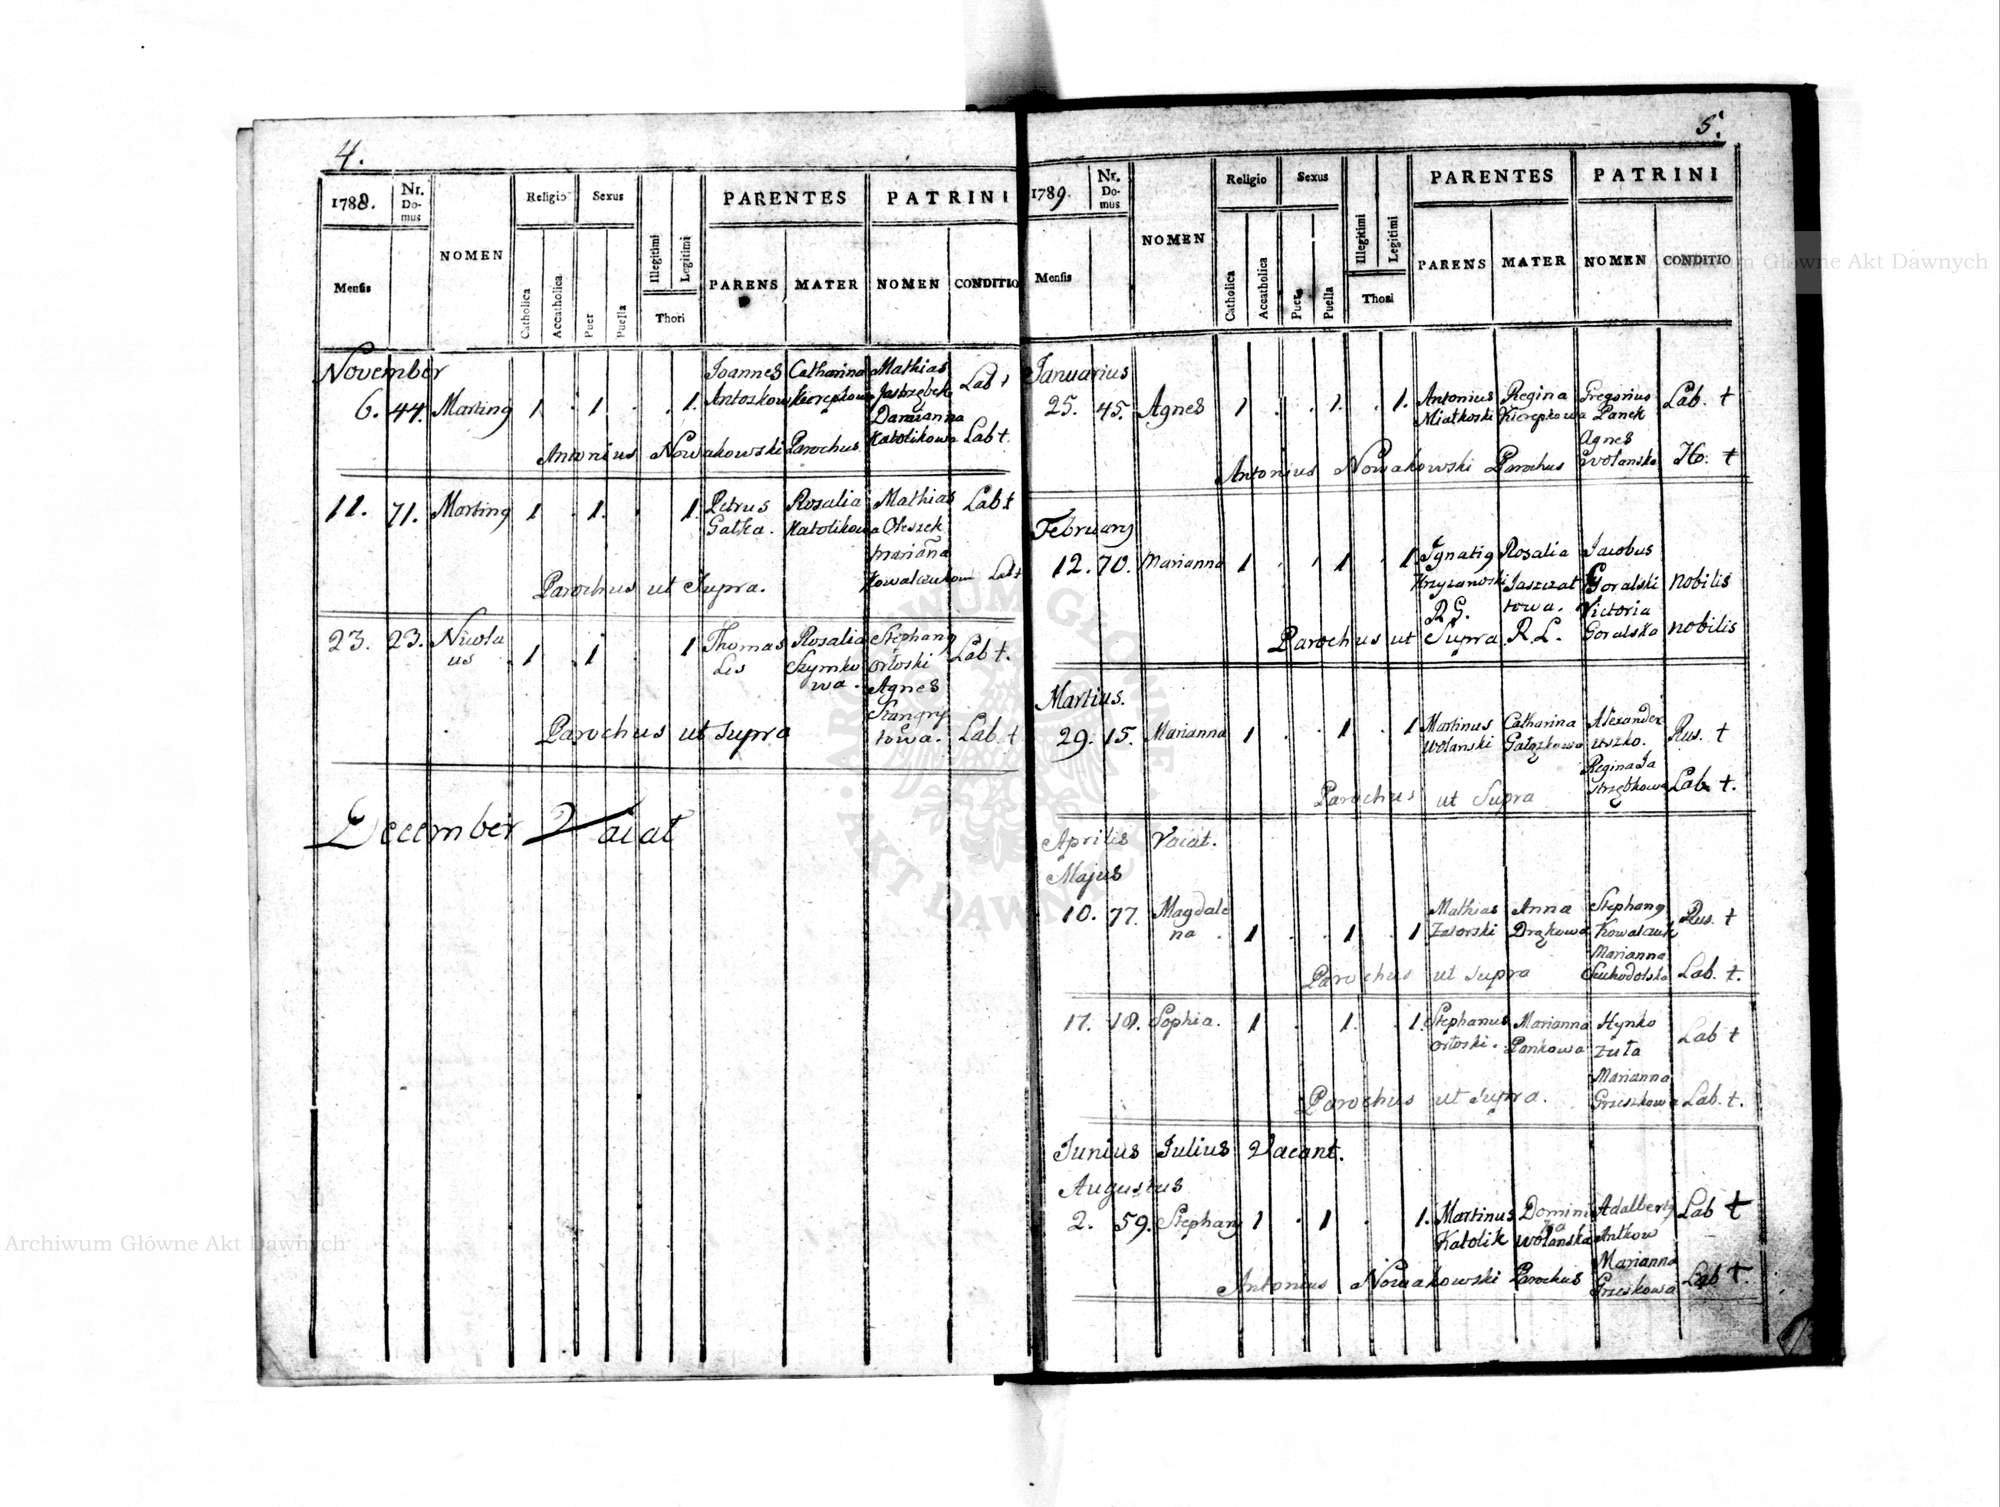 4.
1788. Nr. Domus NOMEN Religio Sexus PARENTES PATRINI
Mensis Catholica Accatholica Puer Puella Illegitimi Legitimi Thori PARENS MATER NOMEN CONDITIO
November
Joannes Catharina Mathias
6. 44. Marting 1 . 1 . . 1. Antoszkow Jastrzębek Lab †
Marianna
Antonius Nowakowski Parochus Katolikowa Lab †.
11. 71. Marting 1 . 1. . 1. Petrus Rosalia Mathias Lab †
Gałka. Katolikowa Oleszek
Marianna
Parochus ut Supra. Kowalczukowa Lab †
23. 23. Nicola Thomas Rosalia Stephang
us . 1 1 . 1 Lis Szymko Orłoski Lab †.
wa. Agnes
Szangry
Parochus ut supra towa. Lab. †
December Vacat
5.
1789. Nr. Domus NOMEN Religio Sexus PARENTES PATRINI
Mensis Catholica Accatholica Puer Puella Illegitimi Legitimi Thori PARENS MATER NOMEN CONDITIO
Januarius
25. 45. Agnes 1 . . 1. . 1. Antonius Regina Gregorius Lab. †
Miałkoski Kierepkowa Panek
Agnes
Antonius Nowakowski Parochus Wolanska Ho: †
Februarg
12. 70. Marianna 1 . . 1 . 1. Ignatig Rosalia Jacobus
Krzyzanoski Jaszczał Goralski nobilis
R. G. towa. Victoria
Parochus ut Supra. R. L. Goralska nobilis
Martius.
29. 15. Marianna 1 . . 1 . 1 Martinus Catharina Alexander Rus. †
Wolanski Gałązkowa Uszko.
Regina Ja
Parochus ut Supra strzębkowa Lab. †.
Aprilis Vacat.
Majus
10. 77. Magdale Mathias Anna Stephang Rus. †
na . 1 . . 1 . 1 Zatorski Drążkowa Kowalczuk
Marianna
Parochus ut supra Suchodolska Lab. †.
17. 18. Sophia. 1 . 1. . 1. Stephanus Marianna Hynko Lab †
Orłoski. Pankowa Zuła
Marianna
Parochus ut supra. Grzeszkowa Lab. †.
Junius Julius Vacant.
Augustus
2. 59. Stephang 1 . 1 . 1. Martinus Domini Adalbertg Lab †
Katolik ka Wolanska Antkow
Marianna
Antonius Nowakowski Parochus Grzeskowa Lab †.
Archiwum Główne Akt Dawnych
Archiwum Główne Akt Dawnych
ARCHIWUM GŁÓWNE AKT DAWNYCH